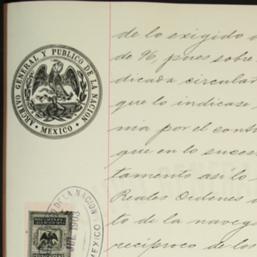 ARCHIVO GENERAL Y PUBLICO DE LA NACION
• MEXICO •
de lo exigido
de 96, pues sobre
dicada circular
que lo indicase
nia por el cont
que en lo suces
tamente asi lo
Reales Ordenes
to de la naveg
recíproco de los
DE LA NACION
MEXICO